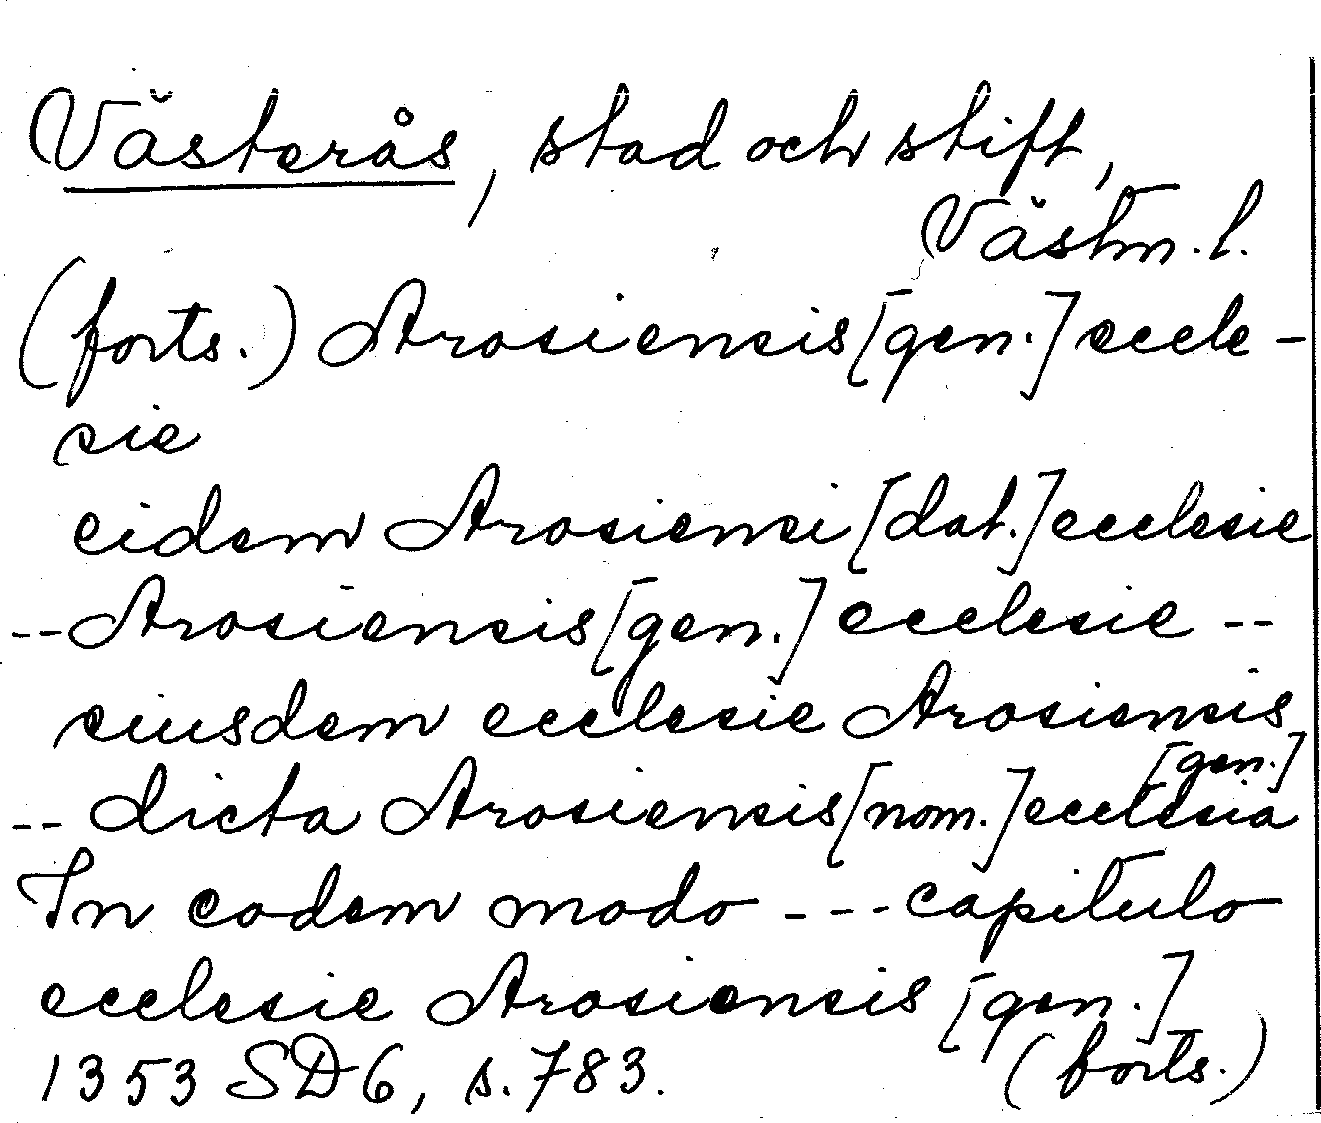 Västerås, stad och stift,
Västm. l.
(forts.) Arosiensis [gen.] eccle-
sie
eidem Arosiensi [dat.] ecclesie
-- Arosiensis [gen.] ecclesie --
eiusdem ecclesie Arosiensis
[gen.]
-- dicta Arosiensis [nom.] ecclesia
In eodem modo --- capitulo
ecclesie Arosiensis [gen.]
1353 SD 6, s. 783. (forts.)